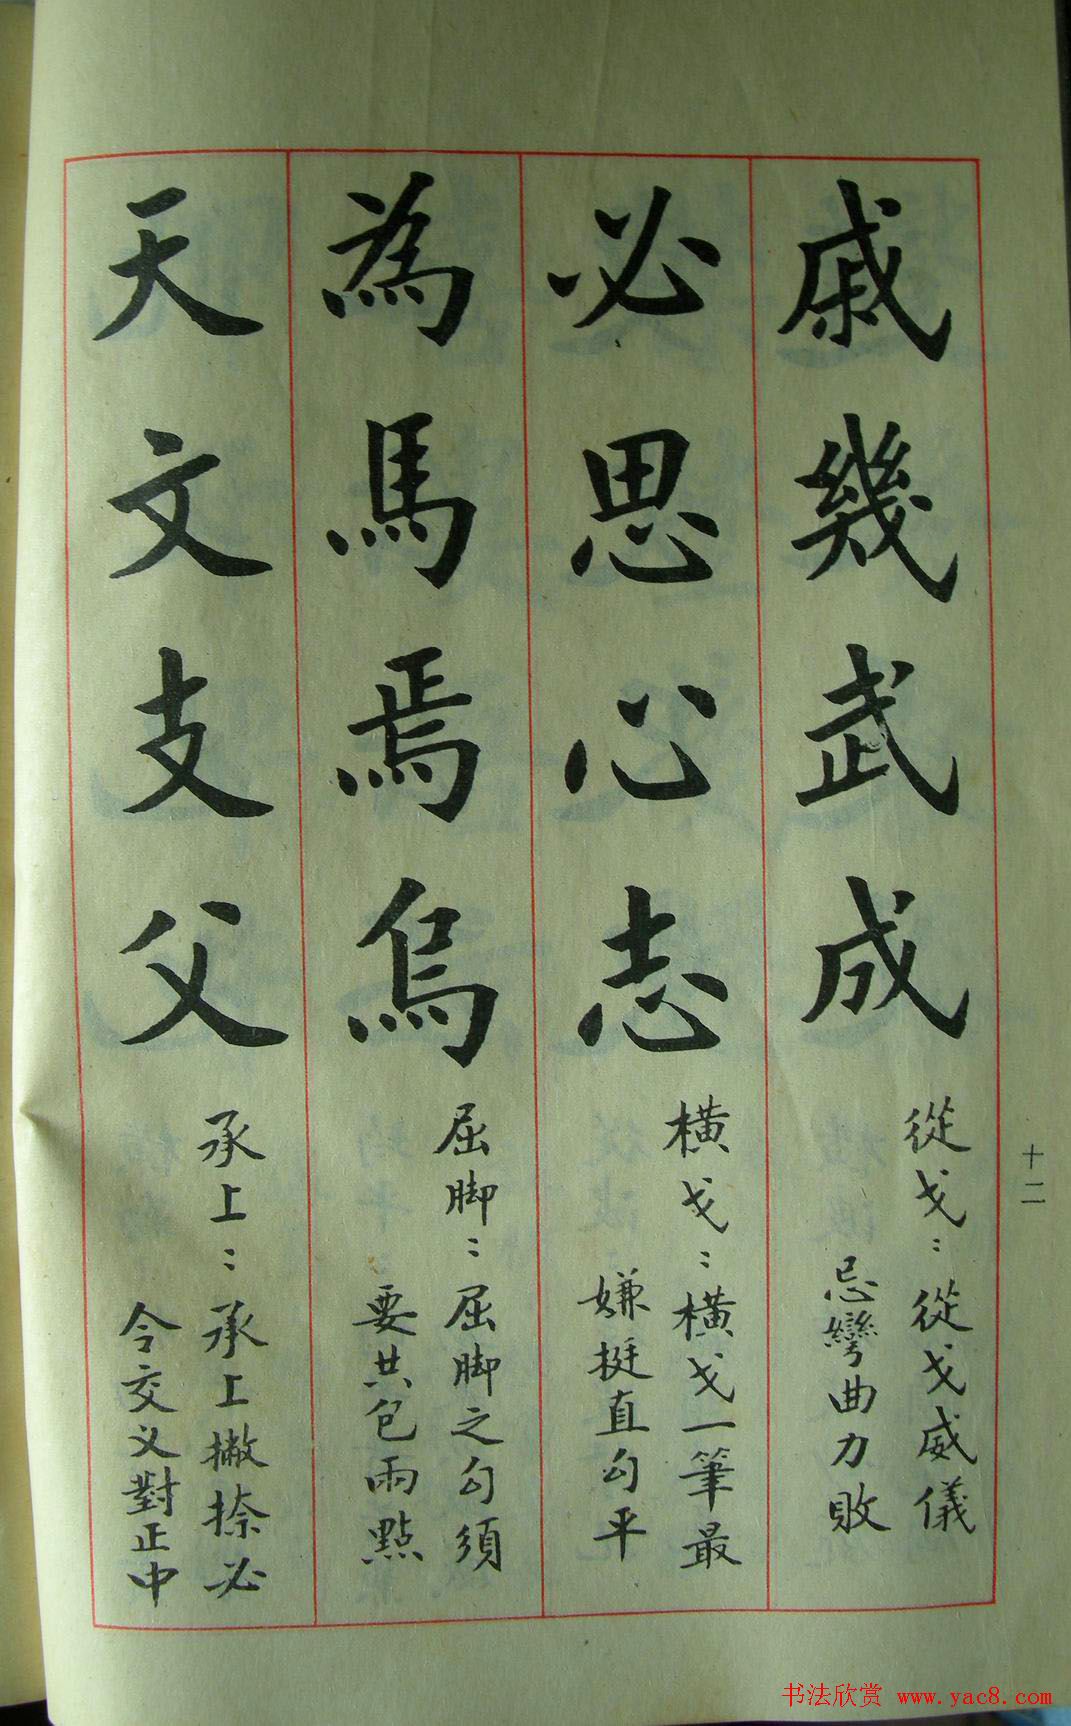 戚幾武成
從戈：從戈威儀
忌彎曲力敗
必思心志
橫戈：橫戈一筆最
嫌挺直勾平
為馬焉烏
屈脚：屈脚之勾須
要共包兩點
天文支父
承上：承上撇捺必
令交义對正中
十二
书法欣赏 www.yac8.com